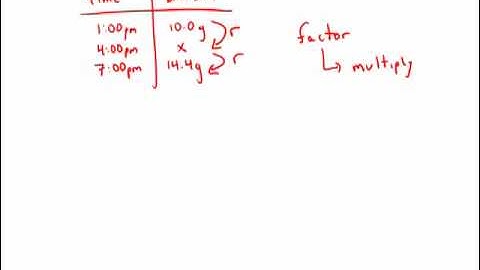 1:00pm 10.0g r
4:00pm x factor
7:00pm 14.4g r multiply